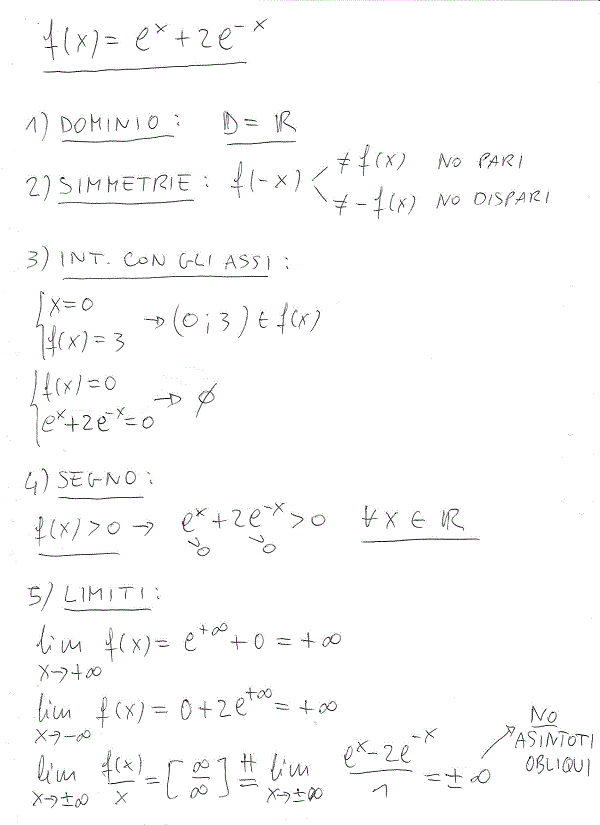 f(x) = eˣ + 2e⁻ˣ
1) DOMINIO : D = ℝ
2) SIMMETRIE : f(-x) < ≠ f(x) NO PARI
≠ -f(x) NO DISPARI
3) INT. CON GLI ASSI :
{ x=0
f(x) = 3 → (0 ; 3) ∈ f(x)
{ f(x) = 0
eˣ+2e⁻ˣ=0 → ∅
4) SEGNO :
f(x) > 0 → eˣ + 2e⁻ˣ > 0 ∀ x ∈ ℝ
>0 >0
5) LIMITI :
lim f(x) = e^{+∞} + 0 = +∞
x→+∞
lim f(x) = 0 + 2e^{+∞} = +∞
x→-∞
lim f(x)/x = [∞/∞] H= lim (eˣ - 2e⁻ˣ)/1 = ±∞ → NO
x→±∞ x→±∞ ASINTOTI
OBLIQUI